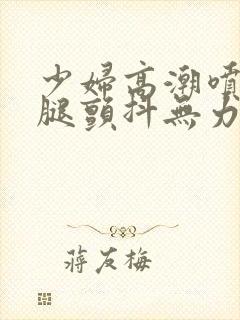 少婦高潮噴
腿顫抖無力
蔣友梅